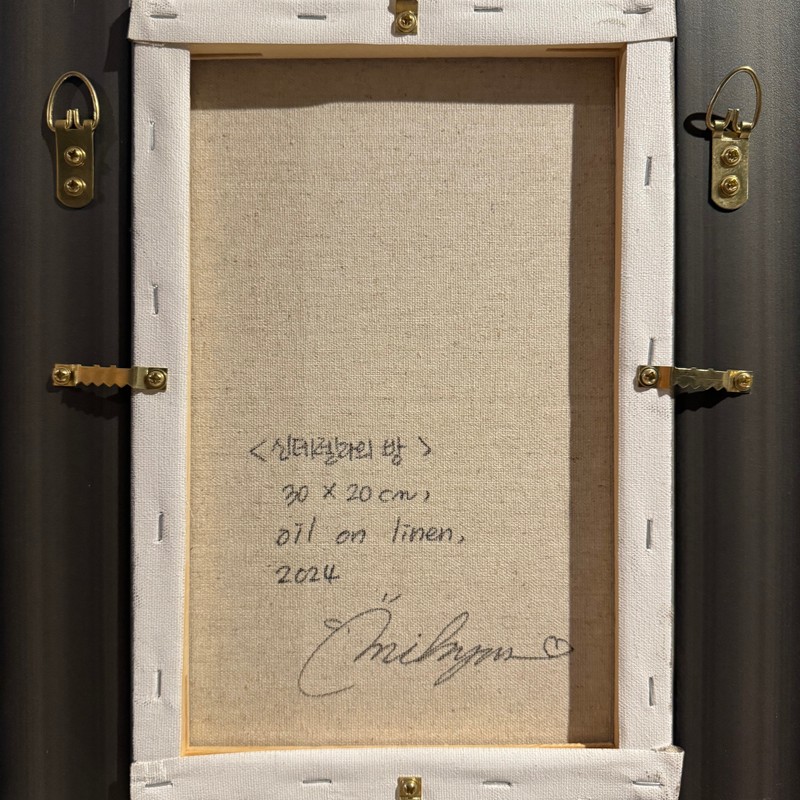 <신데렐라의 방>
30 x 20 cm,
oil on linen,
2024